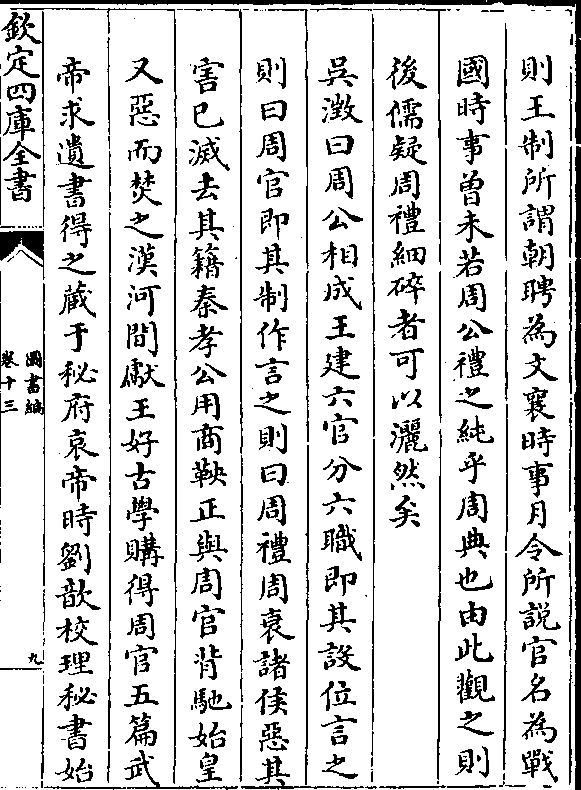 則王制所謂朝聘為文襄時事月令所説官名為戰
國時事曽未若周公禮之純乎周典也由此觀之則
後儒疑周禮細碎者可以灑然矣
吳澂曰周公相成王建六官分六職即其設位言之
則曰周官即其制作言之則曰周禮周衰諸侯惡其
害已滅去其籍秦孝公用商鞅正與周官背馳始皇
又惡而焚之漢河間獻王好古學購得周官五篇武
帝求遺書得之藏于秘府哀帝時劉歆校理秘書始
欽定四庫全書
圖書編
卷十三
九